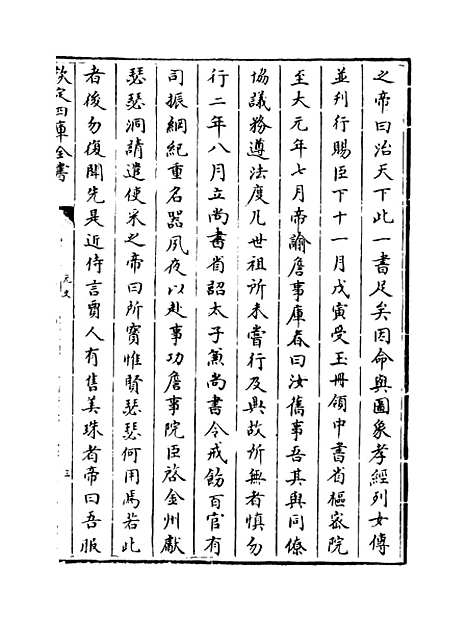 之帝曰治天下此一書足矣因命與圖象孝經列女傳
並刋行賜臣下十一月戊寅受玉冊領中書省樞宻院
至大元年七月帝諭詹事庫春曰汝舊事吾其與同僚
協議務遵法度凡世祖所未嘗行及典故所無者慎勿
行二年八月立尚書省詔太子兼尚書令戒飭百官有
司振綱紀重名器夙夜以赴事功詹事院臣啓金州獻
瑟瑟洞請遣使采之帝曰所寳惟賢瑟瑟何用焉若此
者後勿復聞先是近侍言賈人有售美珠者帝曰吾服
欽定四庫全書
元史
三